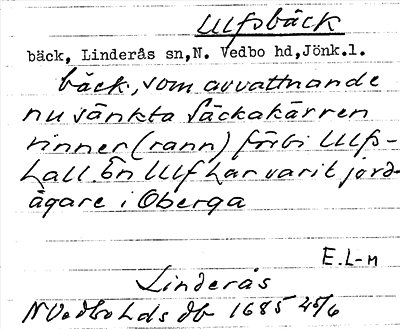 Ulfsbäck
bäck, Linderås sn,N. Vedbo hd,Jönk.l.
bäck, som avvattnande
nu sänkta Säckakärren
rinner (rann) förbi Ulfs-
hall. En Ulf har varit jord-
ägare i Oberga
E.L-m
Linderås
N Vedbo hds db 1685 25/6